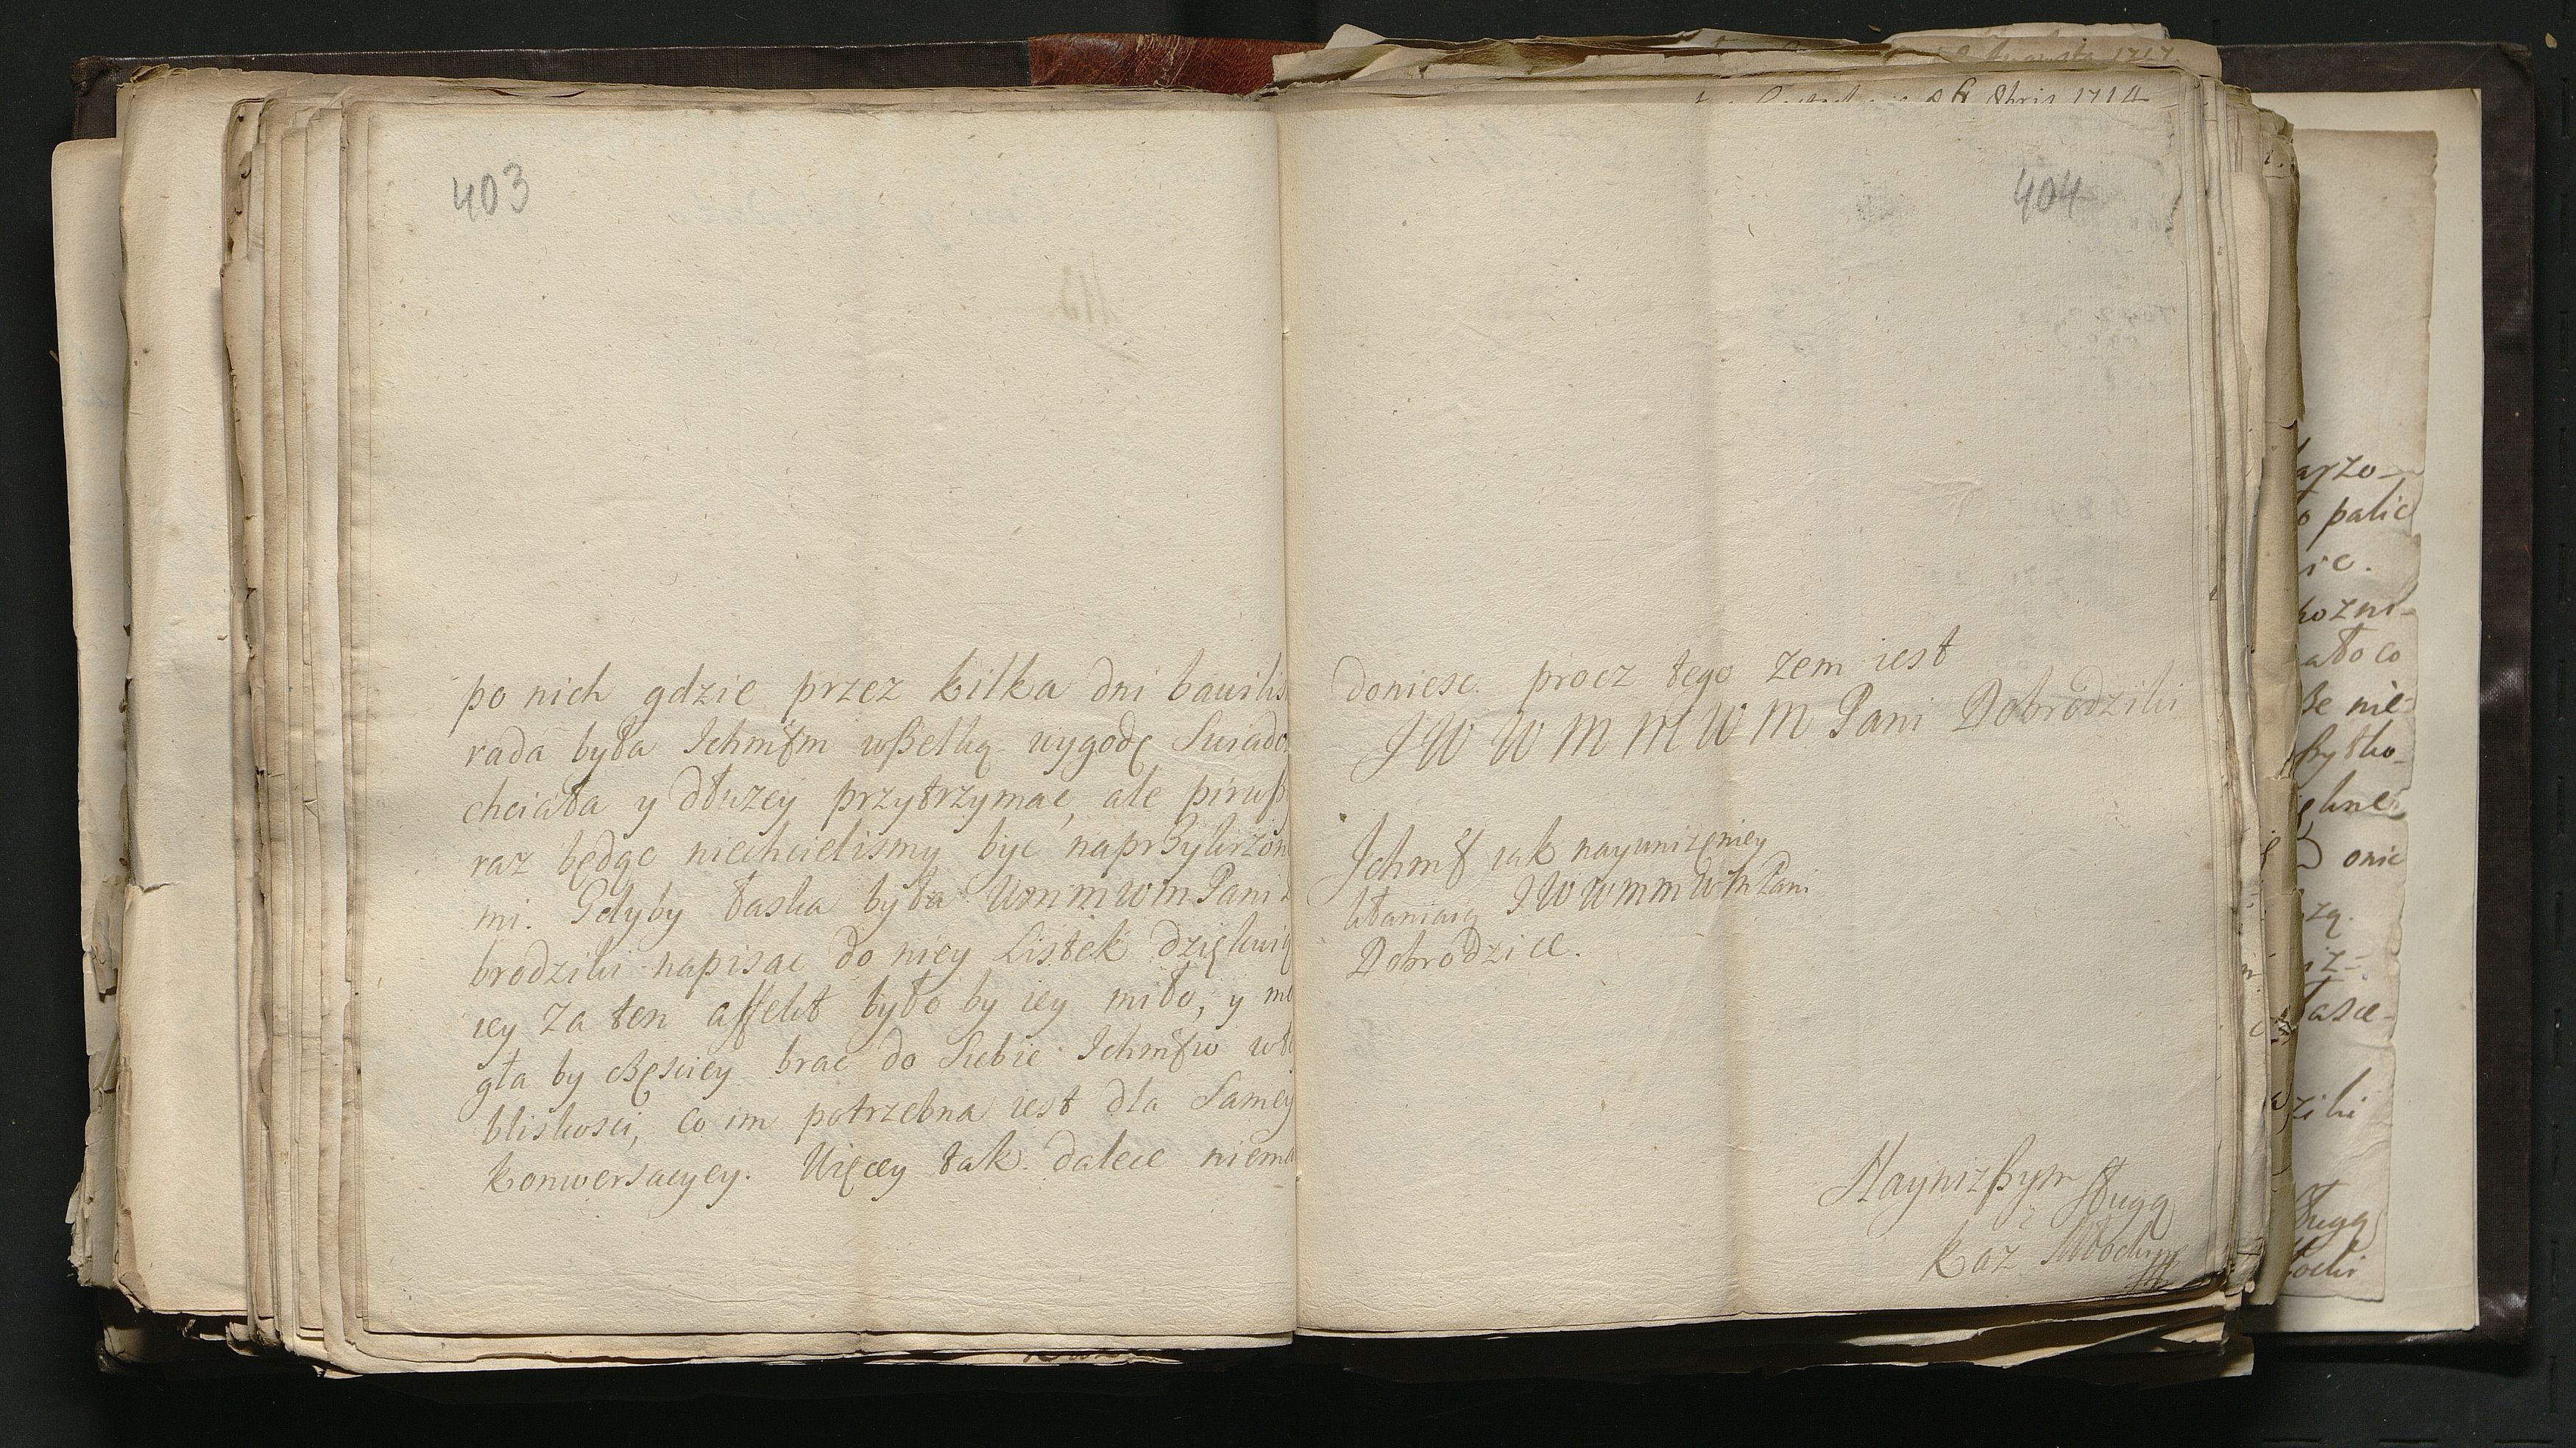 403
po nich gdzie przez kilka dni bawilis
rada była Ichmśm wszelką wygodę Swiado
chciała y dłuzey przytrzymac, ale pirwsz
raz będąc niechcielismy byc naprzykrzon
mi. Gdyby łaska była Wm m W m Pani
brodziki napisac do niey Listek dziękuią
iey Za ten affekt było by iey miło, y mo
gła by częsciey brac do Siebie Ichmśw
bliskosci, co im potrzebna iest dla Samey
konwersacyey. Więcy tak dalece niema
404
doniesc procz tego zem iest
J W W M M W M Pani Dobrodziki
Ichmś iak nayunizęniey
kłaniaią J W W m m W m Pani
Dobrodzice.
Nayniższym sługą
Kaz
8bris 1714
Augusta 1717
arzo-
palic
ic.
kozni-
ało co
ze nie-
szytko-
onie
zą.
łasce-
ziki
sługą